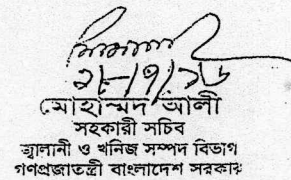 ২৮/৭/১৬
মোহাম্মদ আলী
সহকারী সচিব
জ্বালানী ও খনিজ সম্পদ বিভাগ
গণপ্রজাতন্ত্রী বাংলাদেশ সরকার